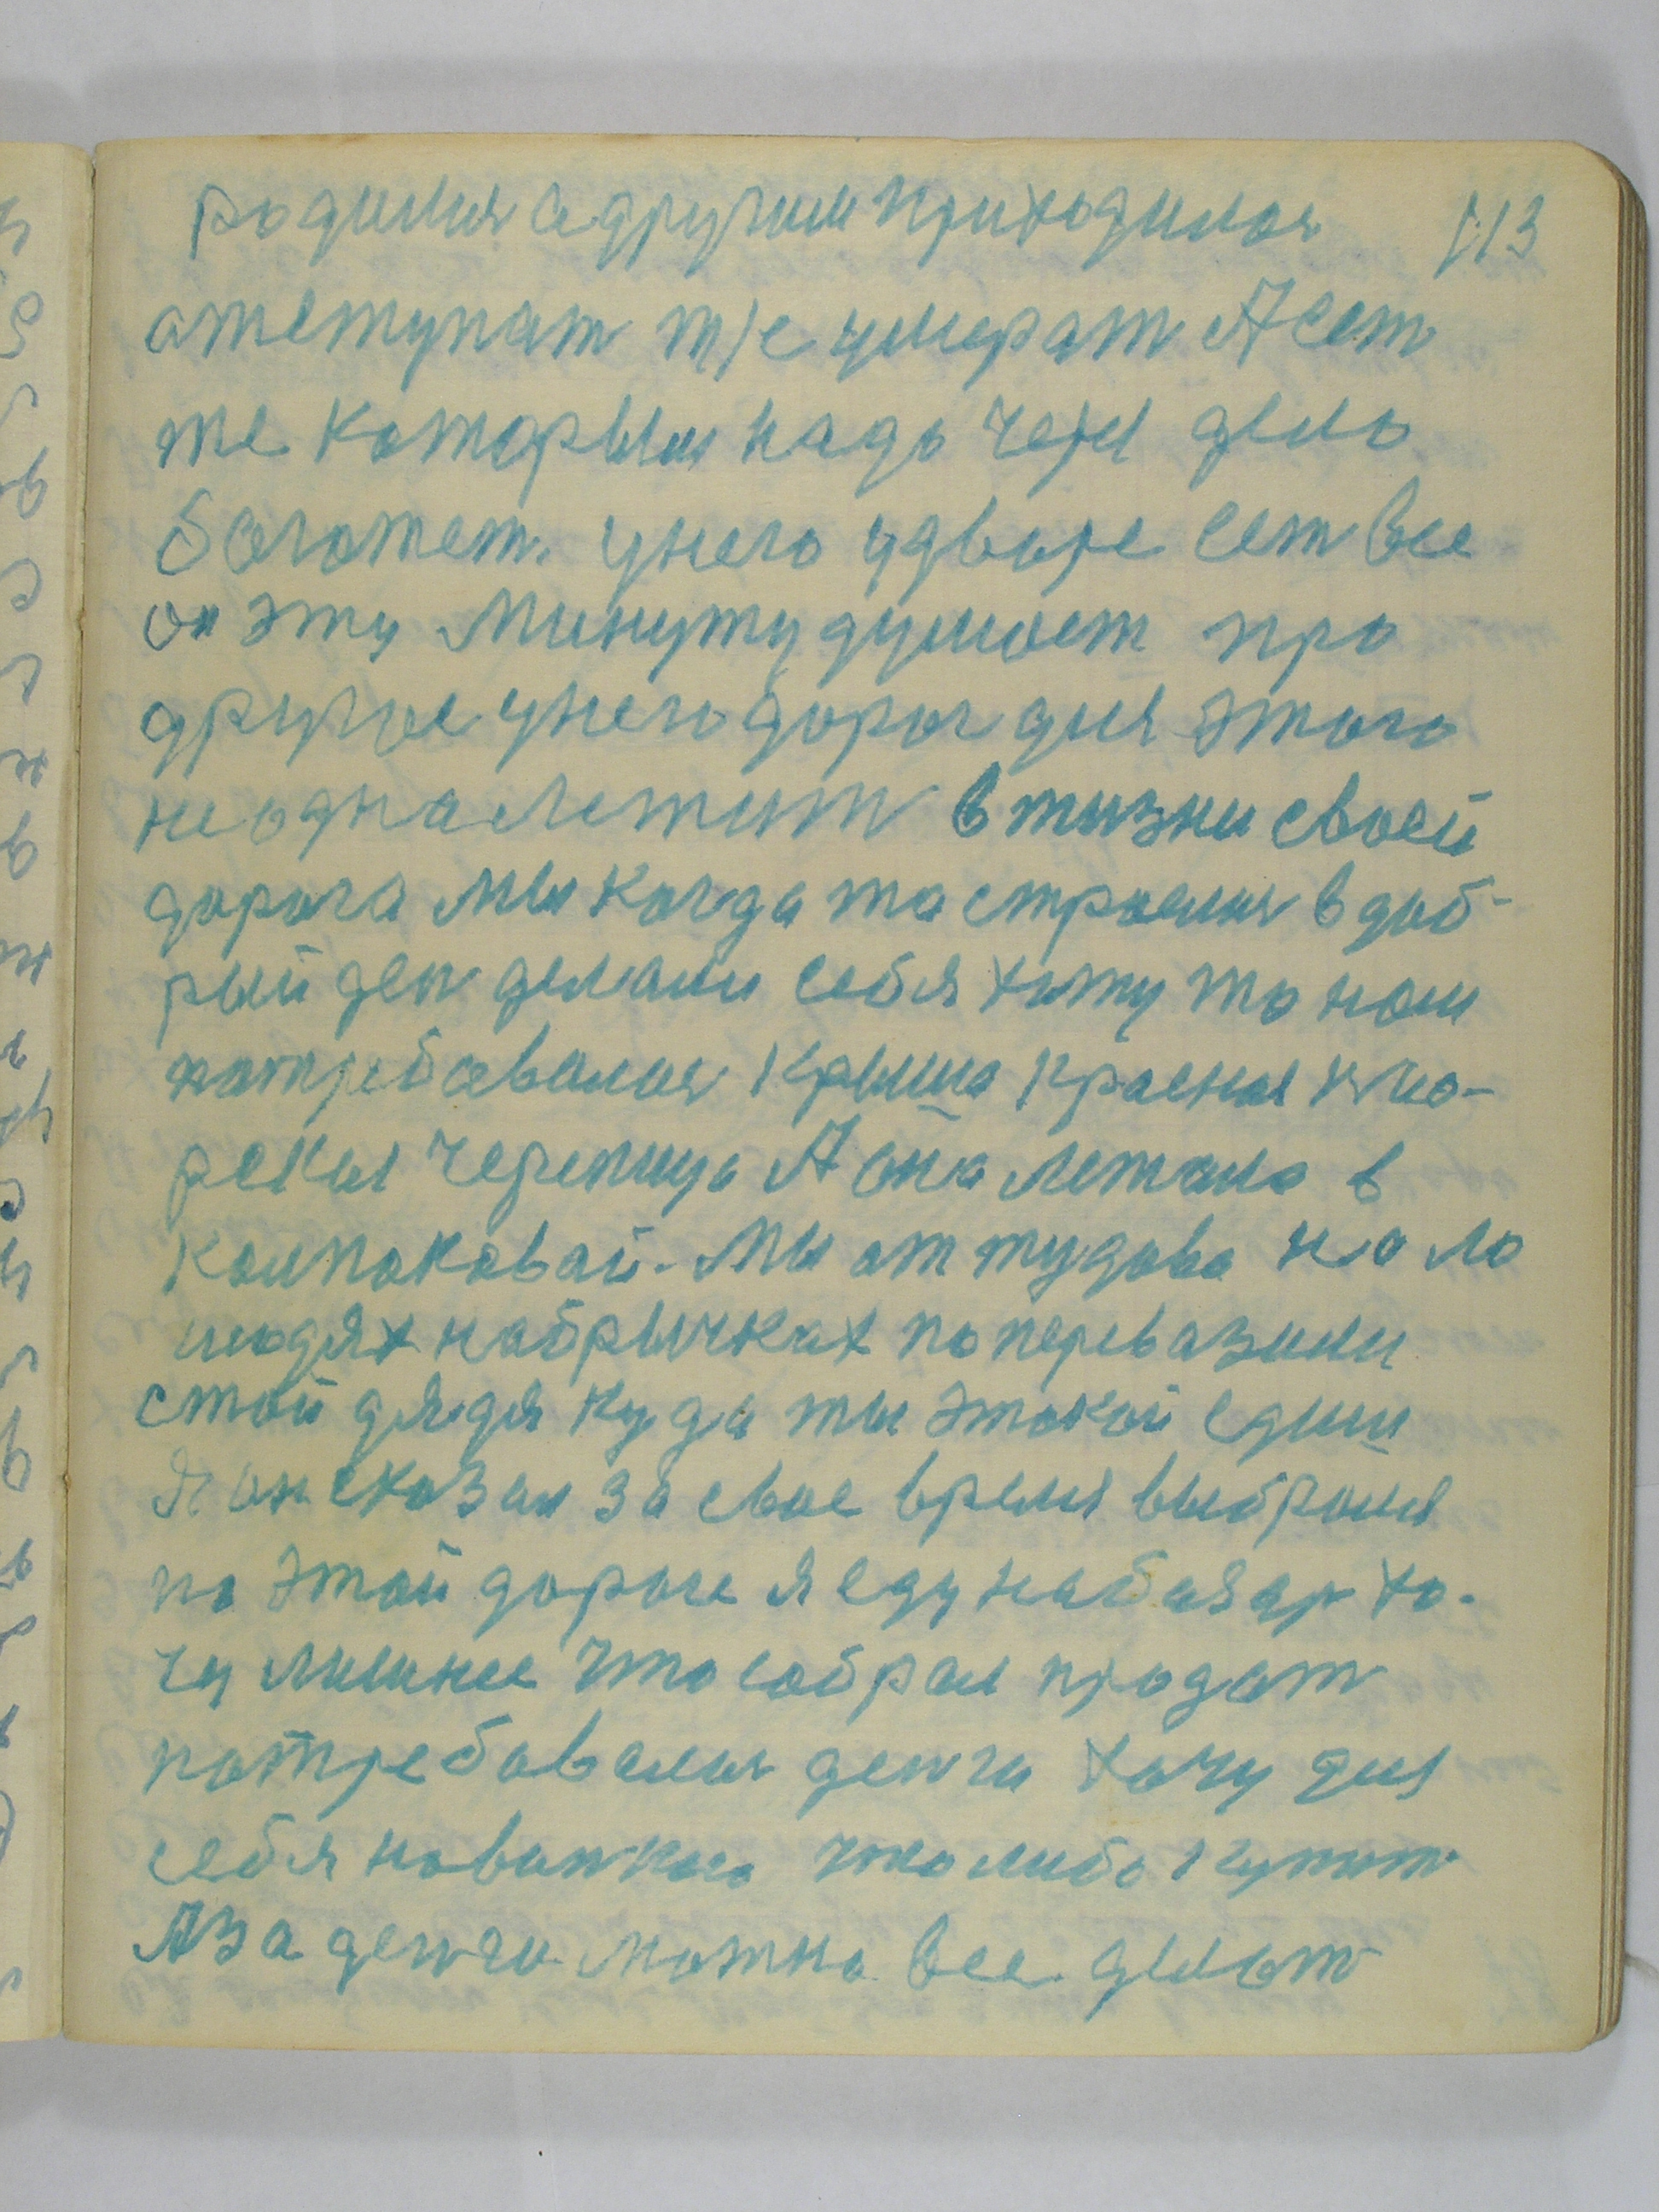 113
родился а другим приходился
атступат т/е умерат А ест
те которым надо через дело
богатет. у него у дворе ест все
он эту минуту думает про
другое у него дорог для этого
не одна лежит в жизни своей
дорога мы когда то строился в доб-
рый ден делали себя хату то нам
потребовался крыша красная
рекая черепица А она лежала в
Колпаковай. Мы от тудова на ло
шадях на бричках по перевазили
стой дядя куда ты этакой едиш
А он сказал за свое время выбрался
по этой дороге я еду на базар хо-
чу лишнее что собрал продат
потребовался денги хочу для
себя новинкаю что либо купит
А за денги можно все делат